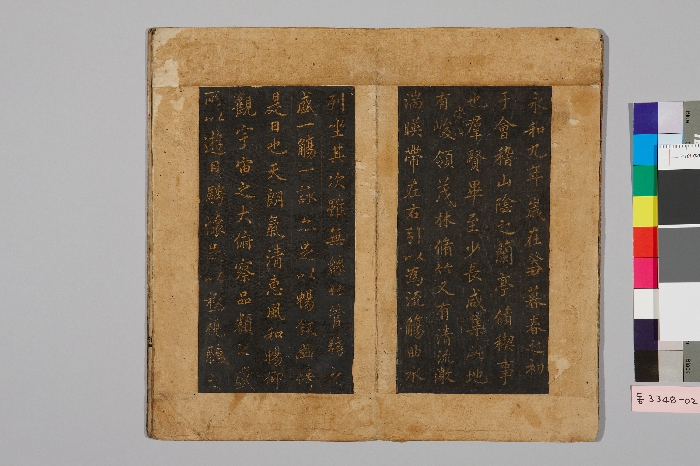 永和九年歲在癸丑暮春之初
于會稽山陰之蘭亭脩稧事
也羣賢畢至少長咸集此地
有峻領茂林脩竹又有清流激
湍暎帶左右引以為流觴曲水
列坐其次雖無絲竹管絃之
盛一觴一詠亦足以暢敘幽情
是日也天朗氣清惠風和暢仰
觀宇宙之大俯察品類之盛
所以遊目騁懷足以極視聽之
동 3348-02